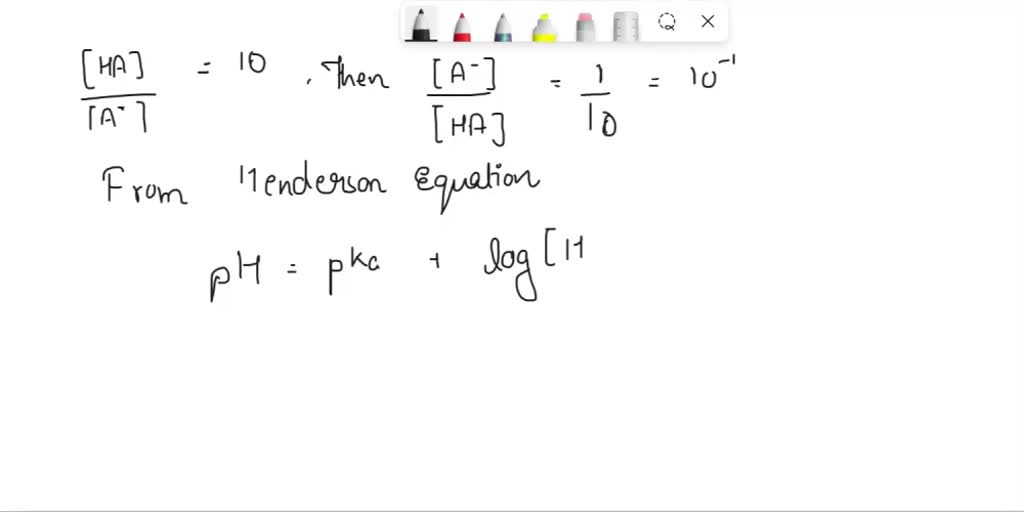 [HA] / [A⁻] = 10 , Then [A⁻] / [HA] = 1 / 10 = 10⁻¹
From Henderson Equation
pH = pka + log [H